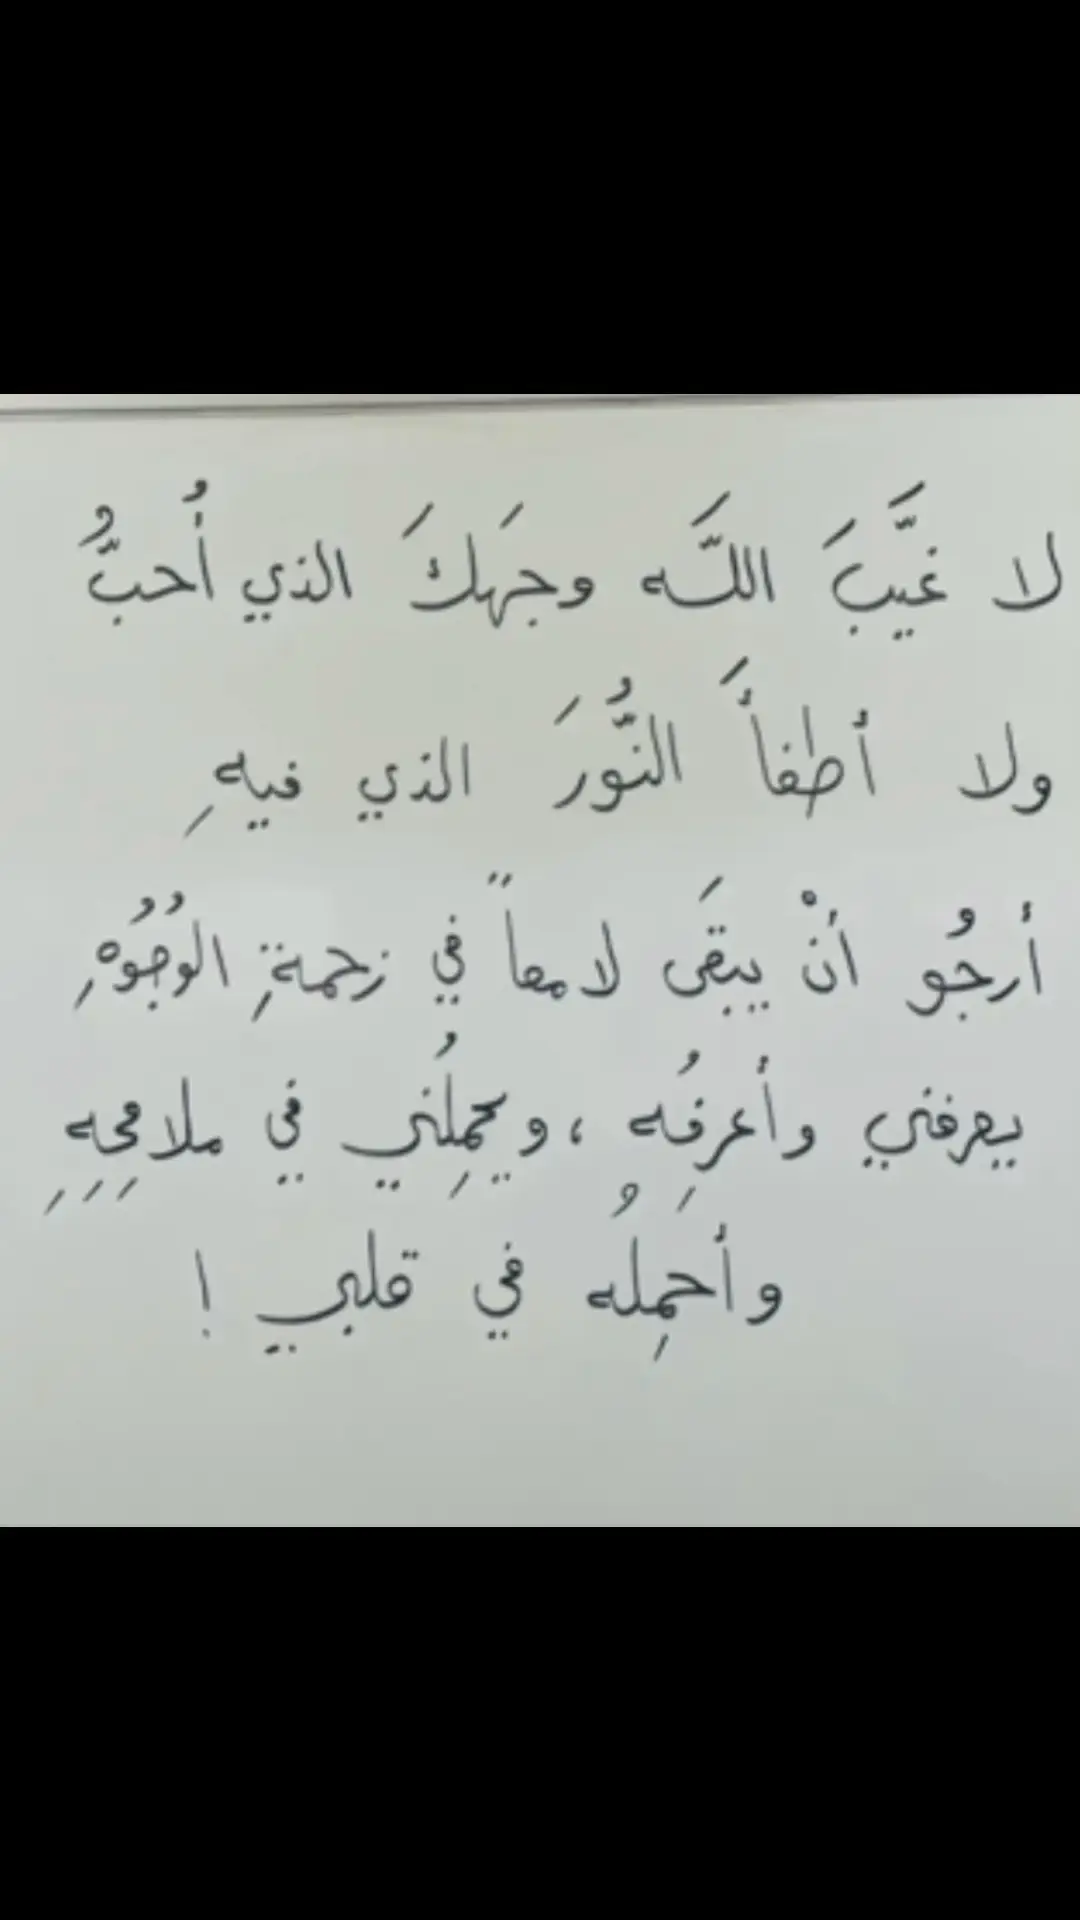 لا غَيَّبَ اللَّه وجهَكَ الذي أُحبُّ
ولا أطفأَ النُّورَ الذي فيهِ
أرجُو أنْ يبقَى لامعاً في زحمةِ الوُجُوهِ
يعرفني وأعرِفُه ، ويحمِلُني في ملامِحِهِ
وأحمِلُه في قلبي !